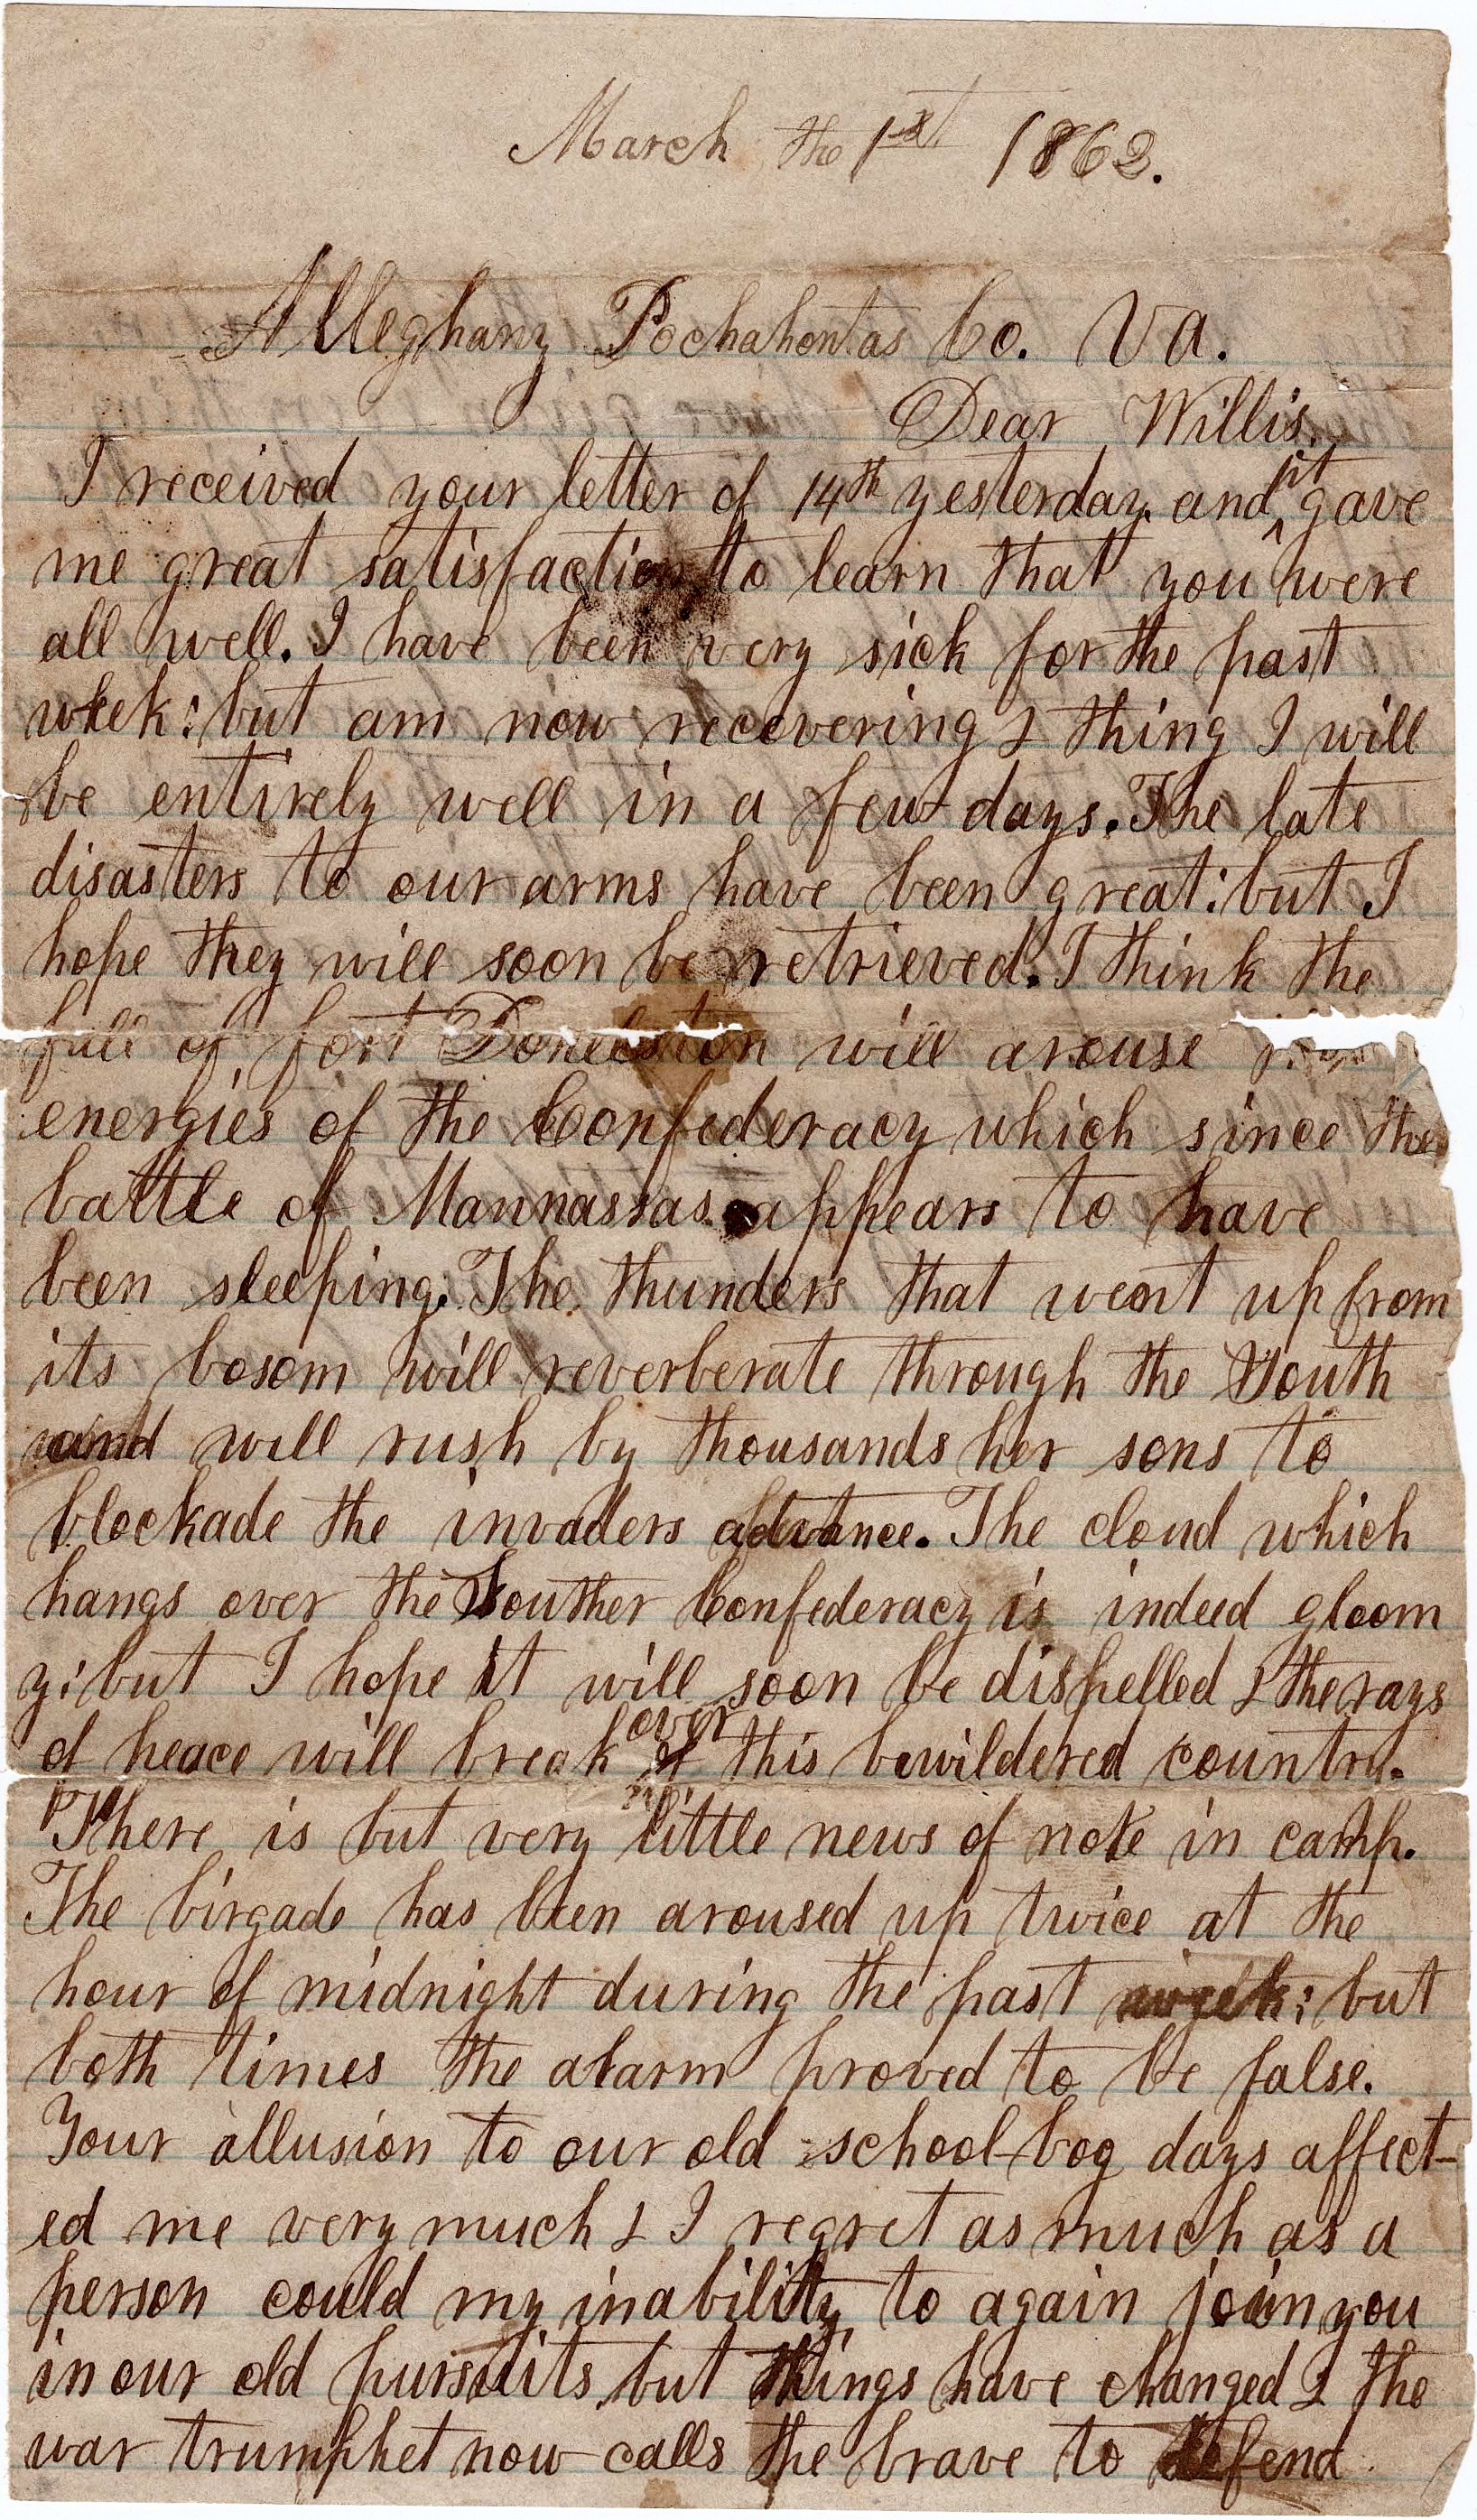 March the 1st 1862.
Alleghany Pochahontas Co. Va.
Dear Willis.
I received your letter of 14th yesterday and it gave
me great satisfaction to learn that you were
all well. I have been very sick for the past
week: but am now recovering & thing I will
be entirely well in a few days. The late
disasters to our arms have been great: but I
hope they will soon be retrieved. I think the
fall of fort Donelston will arouse
energies of the Confederacy which since the
battle of Mannassas appears to have
been sleeping. The thunders that went up from
its bosom will reverberate through the South
and will rush by thousands her sons to
blockade the invaders advance. The cloud which
hangs over the Souther Confederacy is indeed gloom
y: but I hope it will soon be dispelled & the rays
of peace will break over this bewildered country.
There is but very little news of note in camp.
The birgade has been aroused up twice at the
hour of midnight during the past week: but
both times the alarm proved to be false.
Your allusion to our old school-boy days affect-
ed me very much & I regret as much as a
person could my inability to again join you
in our old pursuits but things have changed & the
war trumphet now calls the brave to defend